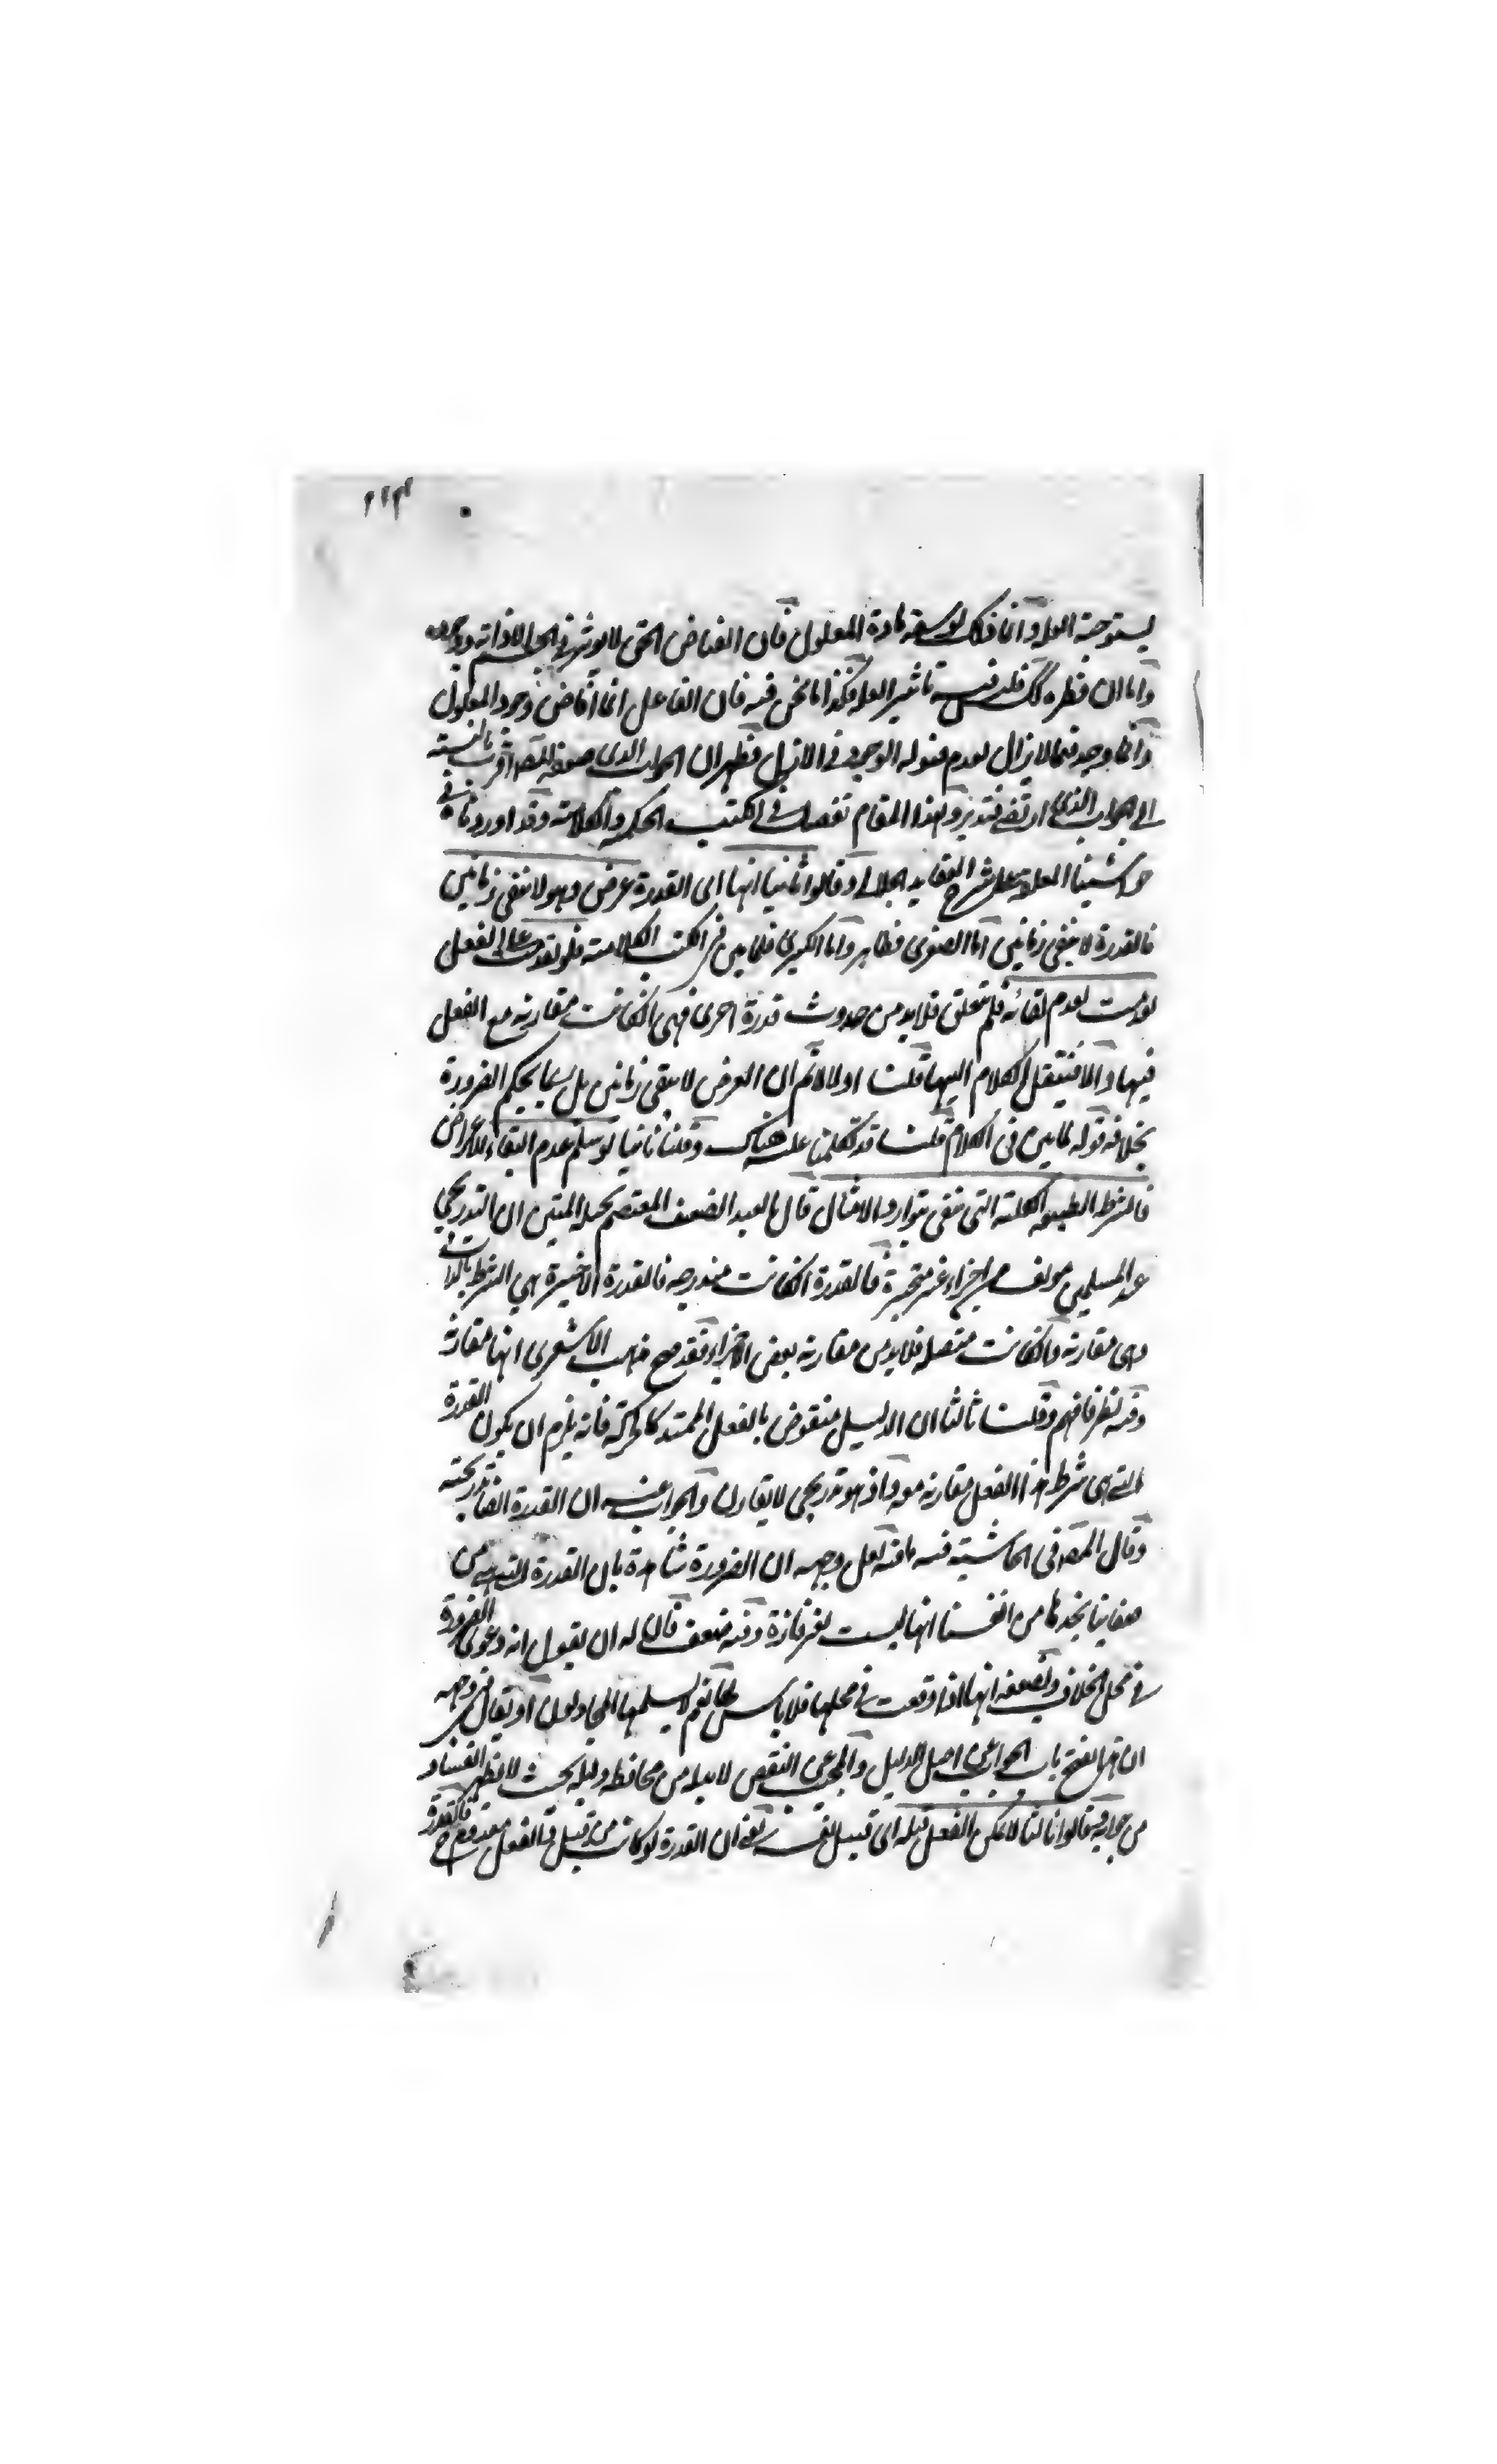 ١١٣
يستوجبه العلة وانما ذلك لو سبقه مادة المعلول فان الفياض الحق لا يوثر في الحل الا ذاته ووجوده
واما ان فطره كك فليس فيه تاثير العلة فكذا ما نحن فيه فان الفاعل انما افاض وجود المعلول
وانما وجد فيما لا يزال لعدم قبوله الوجود في الازل فظهر ان الجواب الذي ضعفه المصـ اقرب بالنسبة
الى الجواب الذي ارتضى فتدبر ولهذا المقام تفصيل في الكتب الحكمية والكلامية وقد اوردناه في
حواشينا المعلقة على شرح العقايد الجلالي وقالوا ثانيا انها اي القدرة عرض وهو لا يبقى زمانين
فالقدرة لا يبقى زمانين اما الصغرى فظاهر واما الكبرى فلما بين في الكتب الكلامية فلو تقدمت على الفعل
لعدمت لعدم بقائه فلم يتعلق فلا بد من حدوث قدرة اخرى فهي انكانت مقارنة مع الفعل
فيها والا فينتقل الكلام اليها قلنا اولا لا نم ان العرض لا يبقى زمانين بل ربما يحكم الضرورة
بخلافه قوله لما بين في الكلام قلنا قد تكلمنا عليه هناك وقلنا ثانيا لو سلم عدم البقاء للاعراض
فالشرط الطبيعة الكلية التي تبقى بتوارد الامثال قال العبد الضعيف المعتصم بحبله المتين ان التدريجي
عند المسلمين مولف من اجزاء غير متجزية فالقدرة انكانت مندرجه فالقدرة الاخيرة هي الشرط بالذات
وهي مقارنة وانكانت متصلة فلا بد من مقارنة بعض الاجزاء فقد صح مذهب الاشعرى انها مقارنة
وفيه نظر فافهم وقلنا ثالثا ان الدليل منقوض بالفعل الممتد كالحركة فانه يلزم ان يكون القدرة
التي هى شرط هذا الفعل مقارنة معه واذ هو تدريجي لا يقارن والجواب عنه ان القدرة ايضا تدريجية
وقال المصـ في الحاشية فيه ما فيه لعل وجهه ان الضرورة شاهدة بان القدرة التي هي من
صفاتنا نجدها من انفسنا انها ليست بغير قارة وفيه ضعف فان له ان يقول انه دعوى الضرورة
في محل الخلاف وتضعيفه انها اذا وقعت في محلها فلا باس بها نعم لا يسلمها المجادلون او يقال في وجهه
ان بهذا يفتح باب الجواب عن اصل الدليل والمجيب عن النقض لا بد له من محافظة دليله بحيث لا يظهر الفساد
من جوابه وقالوا ثالثا لا يمكن الفعل قبله اي قبل نفسه يعني ان القدرة لو كانت من قبل والفعل معدوم ح فالقدرة